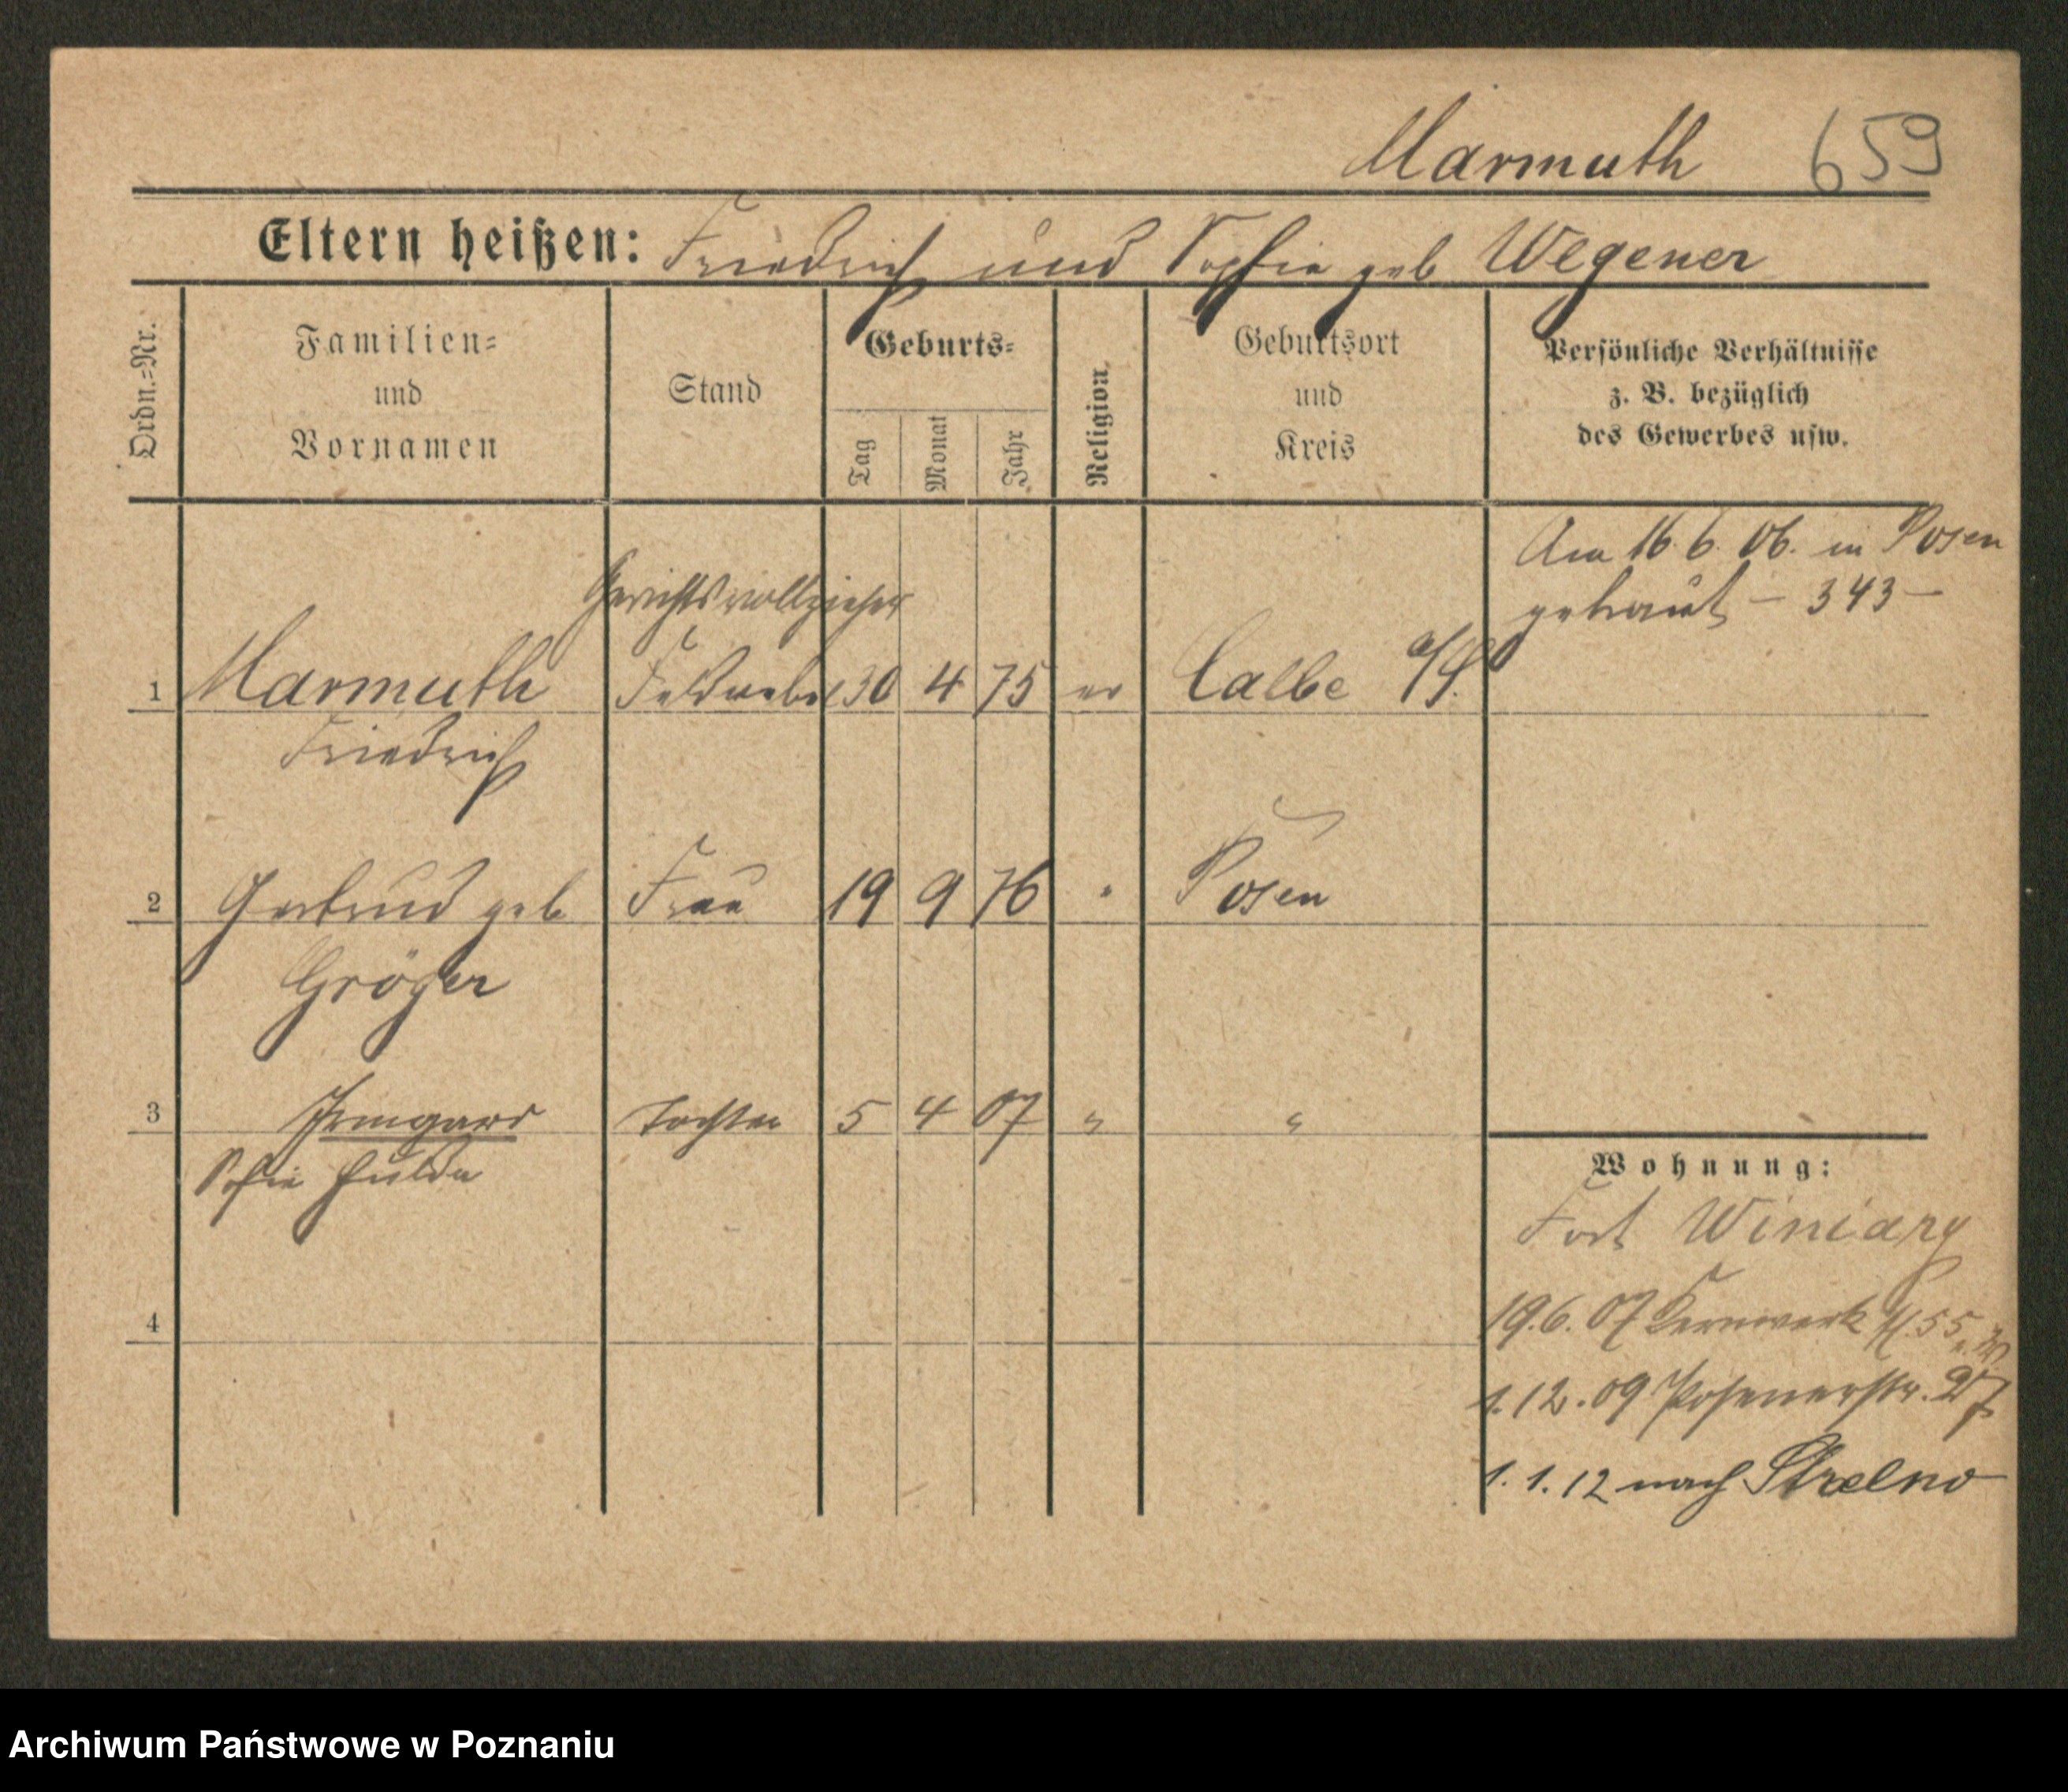 Marmuth 659
Eltern heißen: Friedrich und Sophie geb Wegener
Ordn.-Nr.
Familien-
und
Vornamen
Stand
Geburts-
Tag
Monat
Jahr
Religion
Geburtsort
und
Kreis
Persönliche Verhältnisse
z. B. bezüglich
des Gewerbes usw.
Am 16. 6. 06. in Posen
getraut – 343 –
Gerichtsvollzieher
1 Marmuth Feldwebel 30 4 75 ev Calbe a/S.
Friedrich
2 Gertrud geb Frau 19 9 76 " Posen
Gröger
3 Irmgard Tochter 5 4 07 " "
Sofie Hulda
4
Wohnung:
Fort Winiary
19.6.07 Kernwerk 55
1.12.09 Posenerstr. 27
1.1.12 nach Strelno
Archiwum Państwowe w Poznaniu